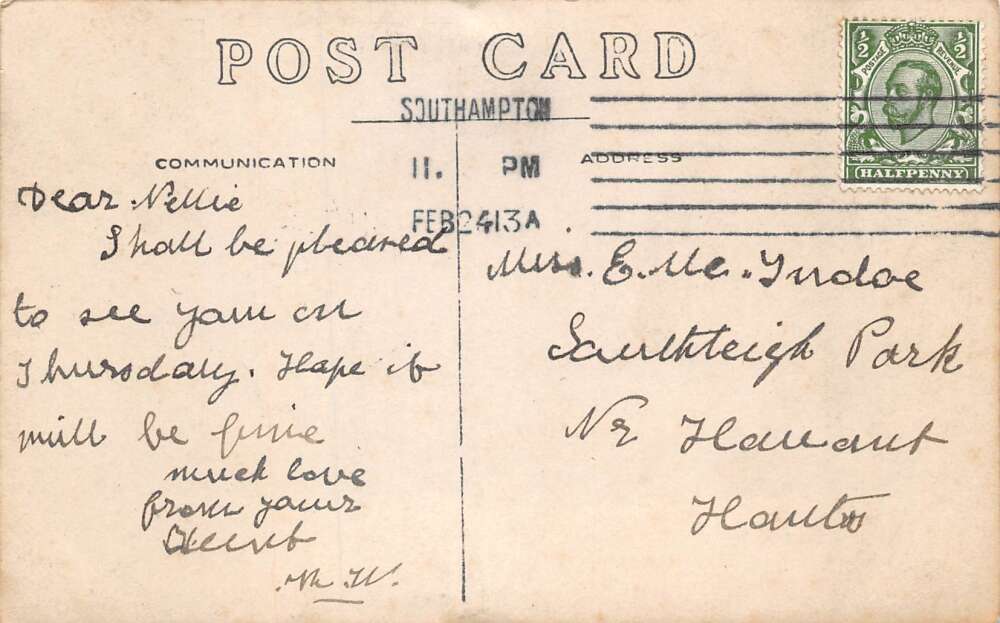 POST CARD
SOUTHAMPTON
11. PM
FEB 24 13 A
½ ½
POSTAGE REVENUE
HALFPENNY
COMMUNICATION
ADDRESS
Dear Nellie
I hall be pleased
to see you on
Thursday. Hope it
will be fine
much love
from your
Aunt
M. W.
Miss. E. Mc.
Southleigh Park
Nr Havant
Hants